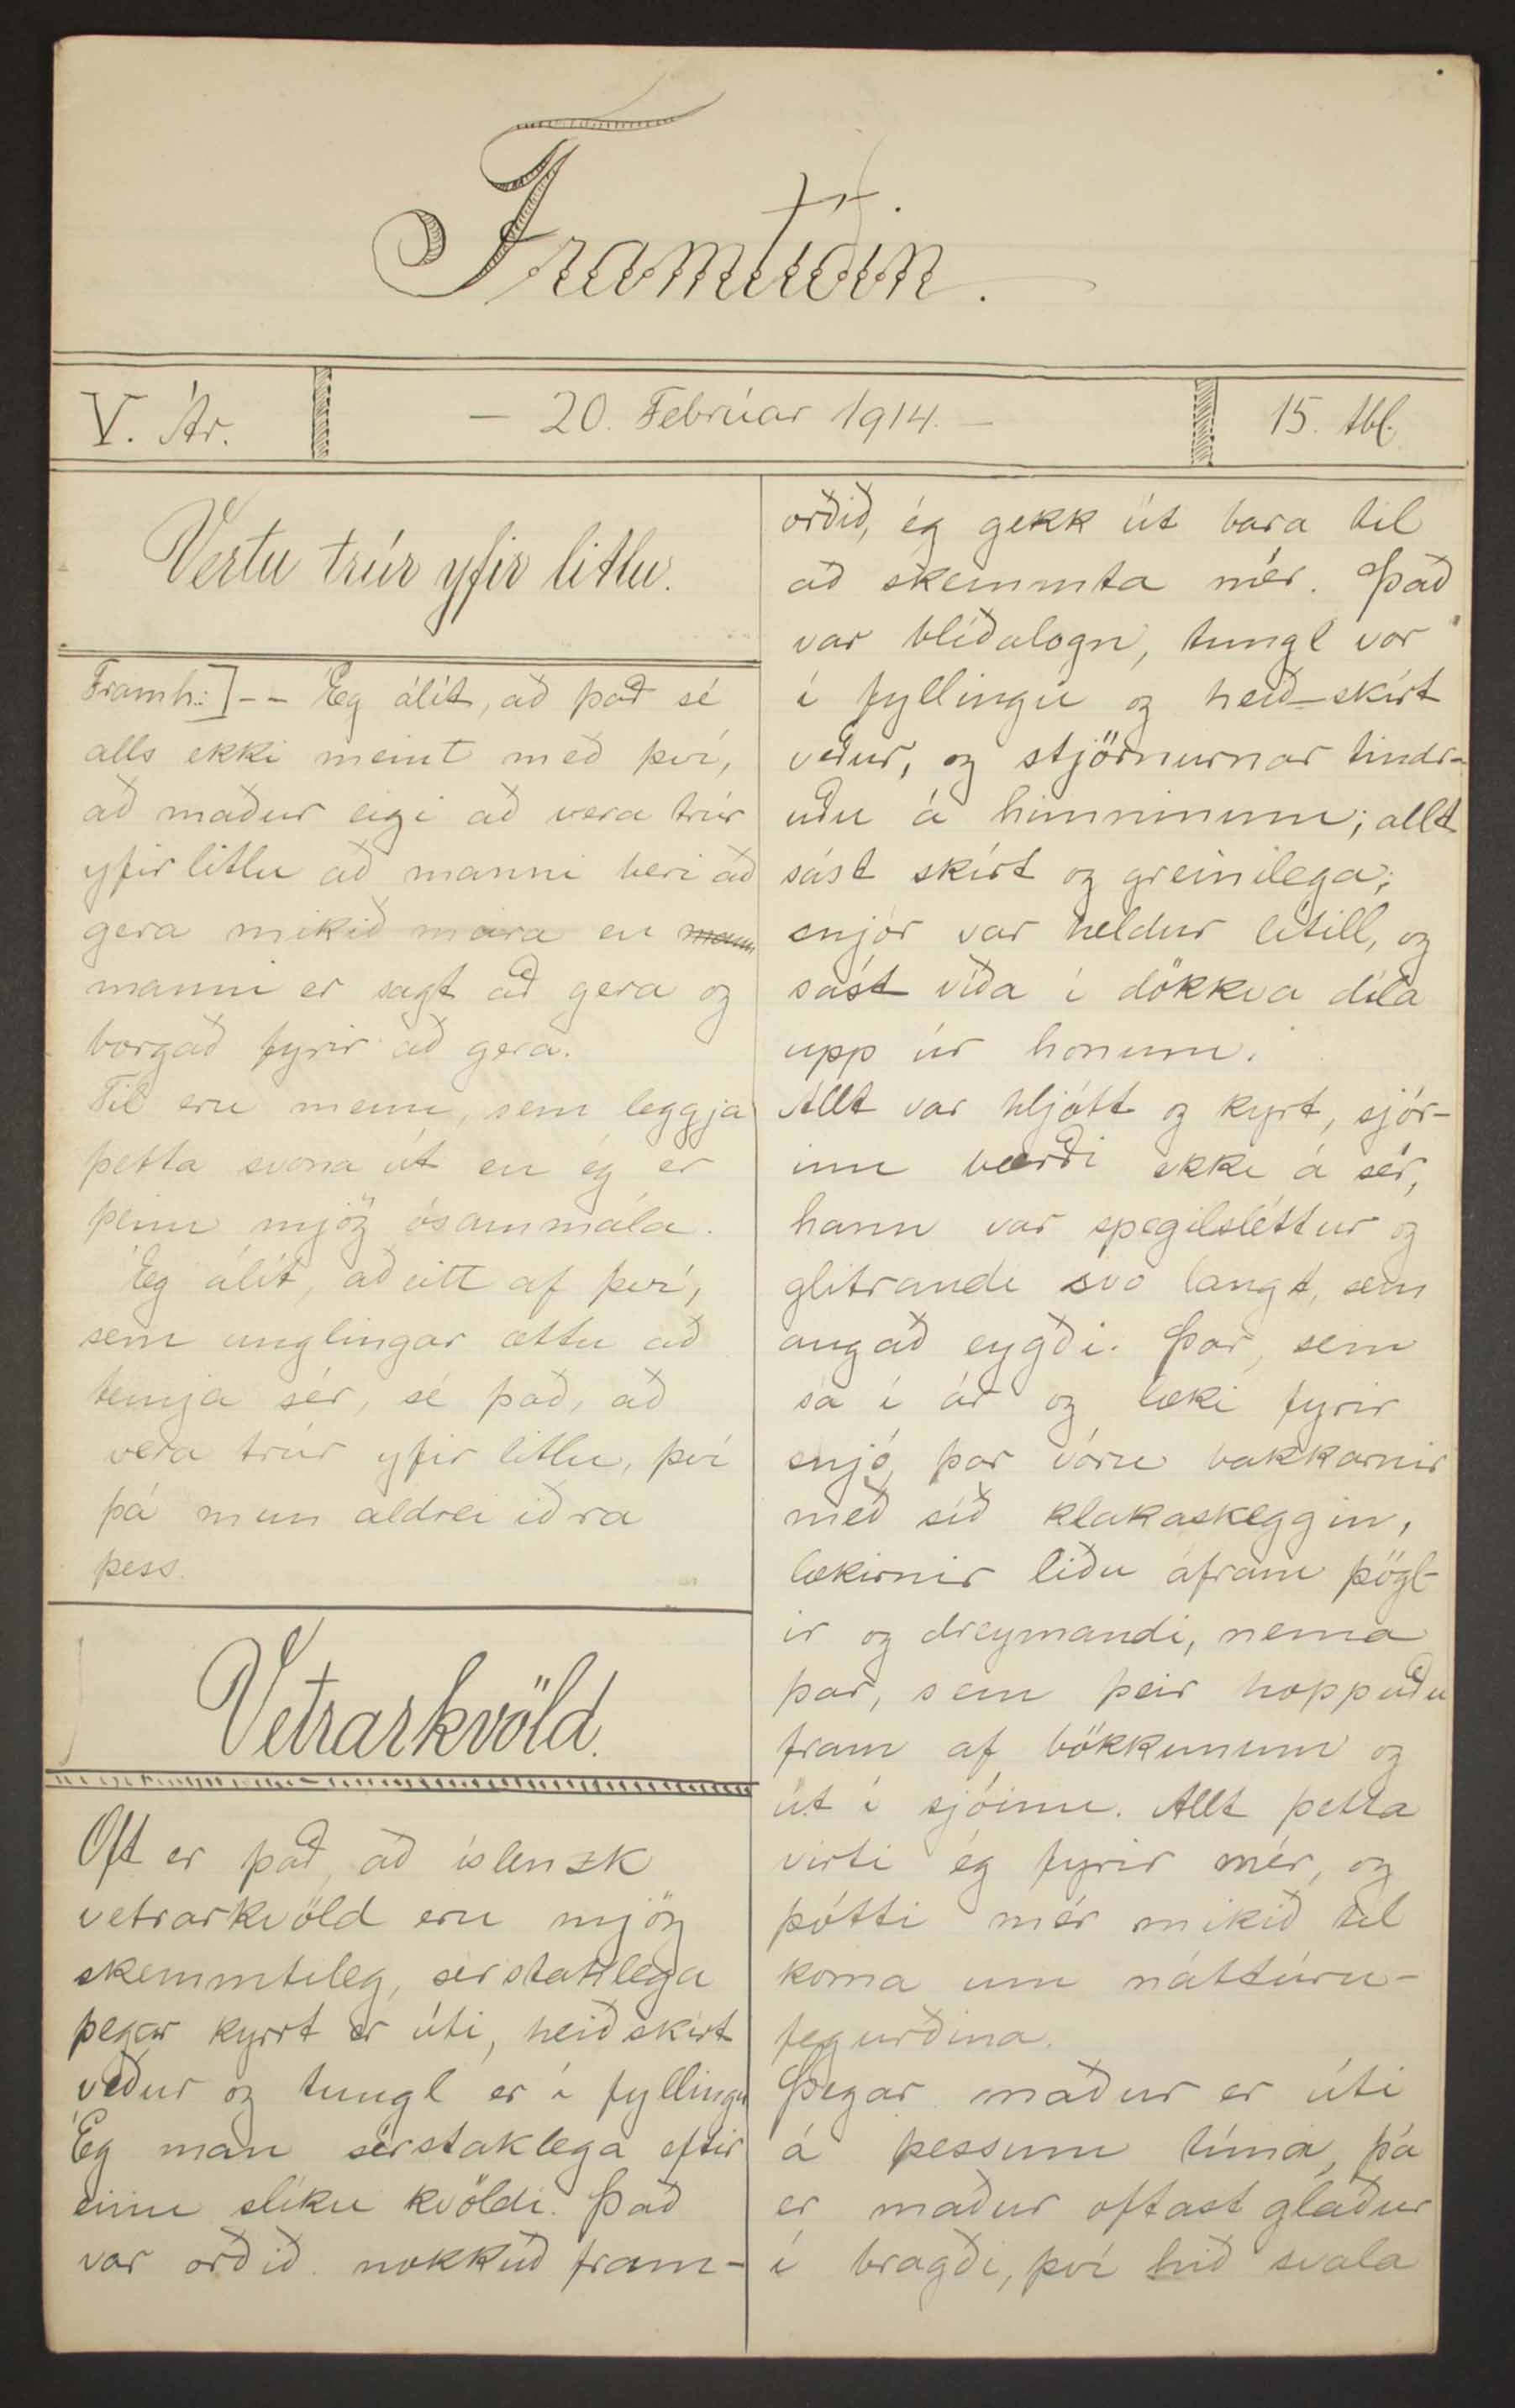 Framtíðin.
V. Ár.
- 20. Febrúar 1914. -
15. tbl.
Vertu trúr yfir litlu.
Framh:] -- Eg álít, að það sé
alls ekki meint með því,
að maður eigi að vera trúr
yfir litlu að manni beri að
gera mikið meira en mann
manni er sagt að gera og
borgað fyrir að gera.
Til eru menn, sem leggja
þetta svona út en ég er
þeim mjög ósammála.
Eg álít, að eitt af því,
sem unglingar ættu að
temja sér, sé það, að
vera trúr yfir litlu, því
þá mun aldrei iðra
þess.
Vetrarkvöld.
Oft er það, að íslenzk
vetrarkvöld eru mjög
skemmtileg, sérstaklega
þegar kyrrt er úti, heiðskírt
veður og tungl er í fyllingu
Ég man sérstaklega eftir
einu slíku kvöldi. Það
var orðið nokkuð fram-
orðið, ég gekk út bara til
að skemmta mér. Það
var blíðalogn, tungl var
í fyllingu og heið-skírt
veður, og stjörnurnar tindr-
uðu á himninum; allt
sást skírt og greinilega;
snjór var heldur lítill, og
sást víða í dökkva díla
upp úr honum.
Allt var hljótt og kyrt, sjór-
inn bærði ekki á sér,
hann var spegilsléttur og
glitrandi svo langt, sem
augað eygði. Þar, sem
sá í ár og læki fyrir
snjó, þar vóru bakkarnir
með síð klakaskeggin,
lækirnir liðu áfram þögl-
ir og dreymandi, nema
þar, sem þeir hoppuðu
fram af bökkunum og
út í sjóinn. Allt þetta
virti ég fyrir mér, og
þótti mér mikið til
koma um náttúru-
fegurðina.
Þegar maður er úti
á þessum tíma, þá
er maður oftast glaður
í bragði, því hið svala